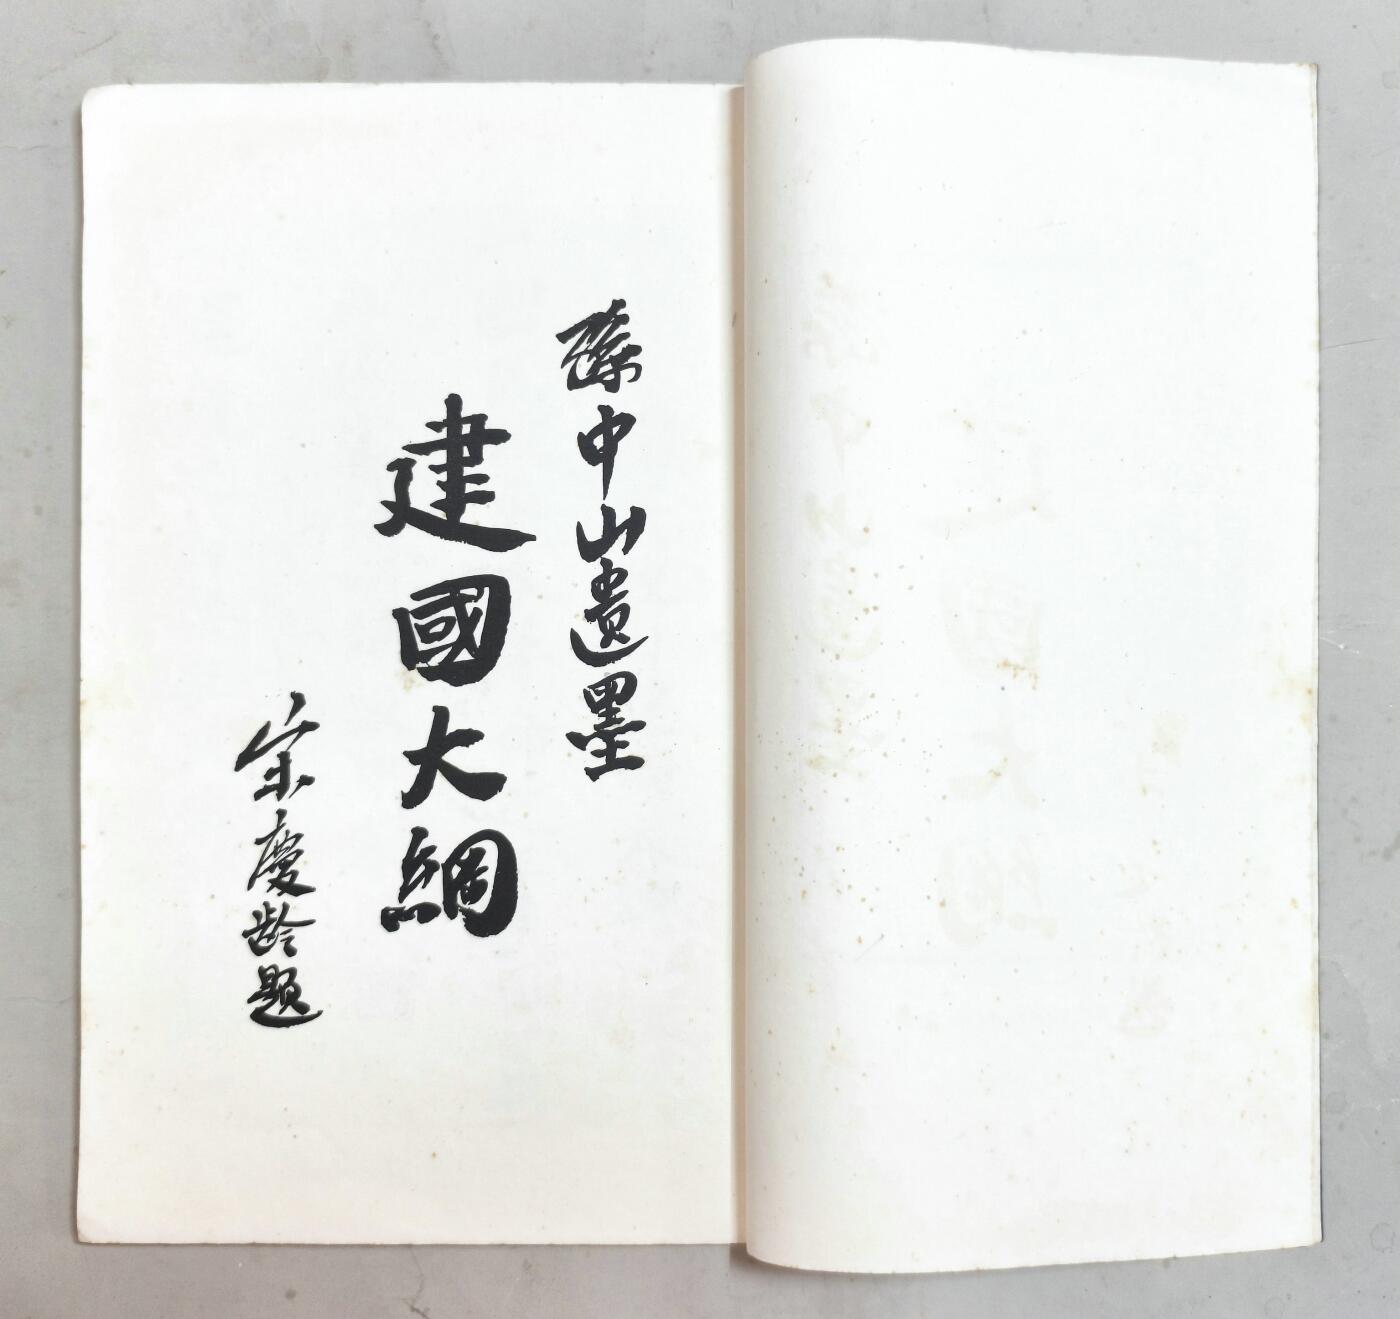 孫中山遺墨
建國大綱
宋慶龄題